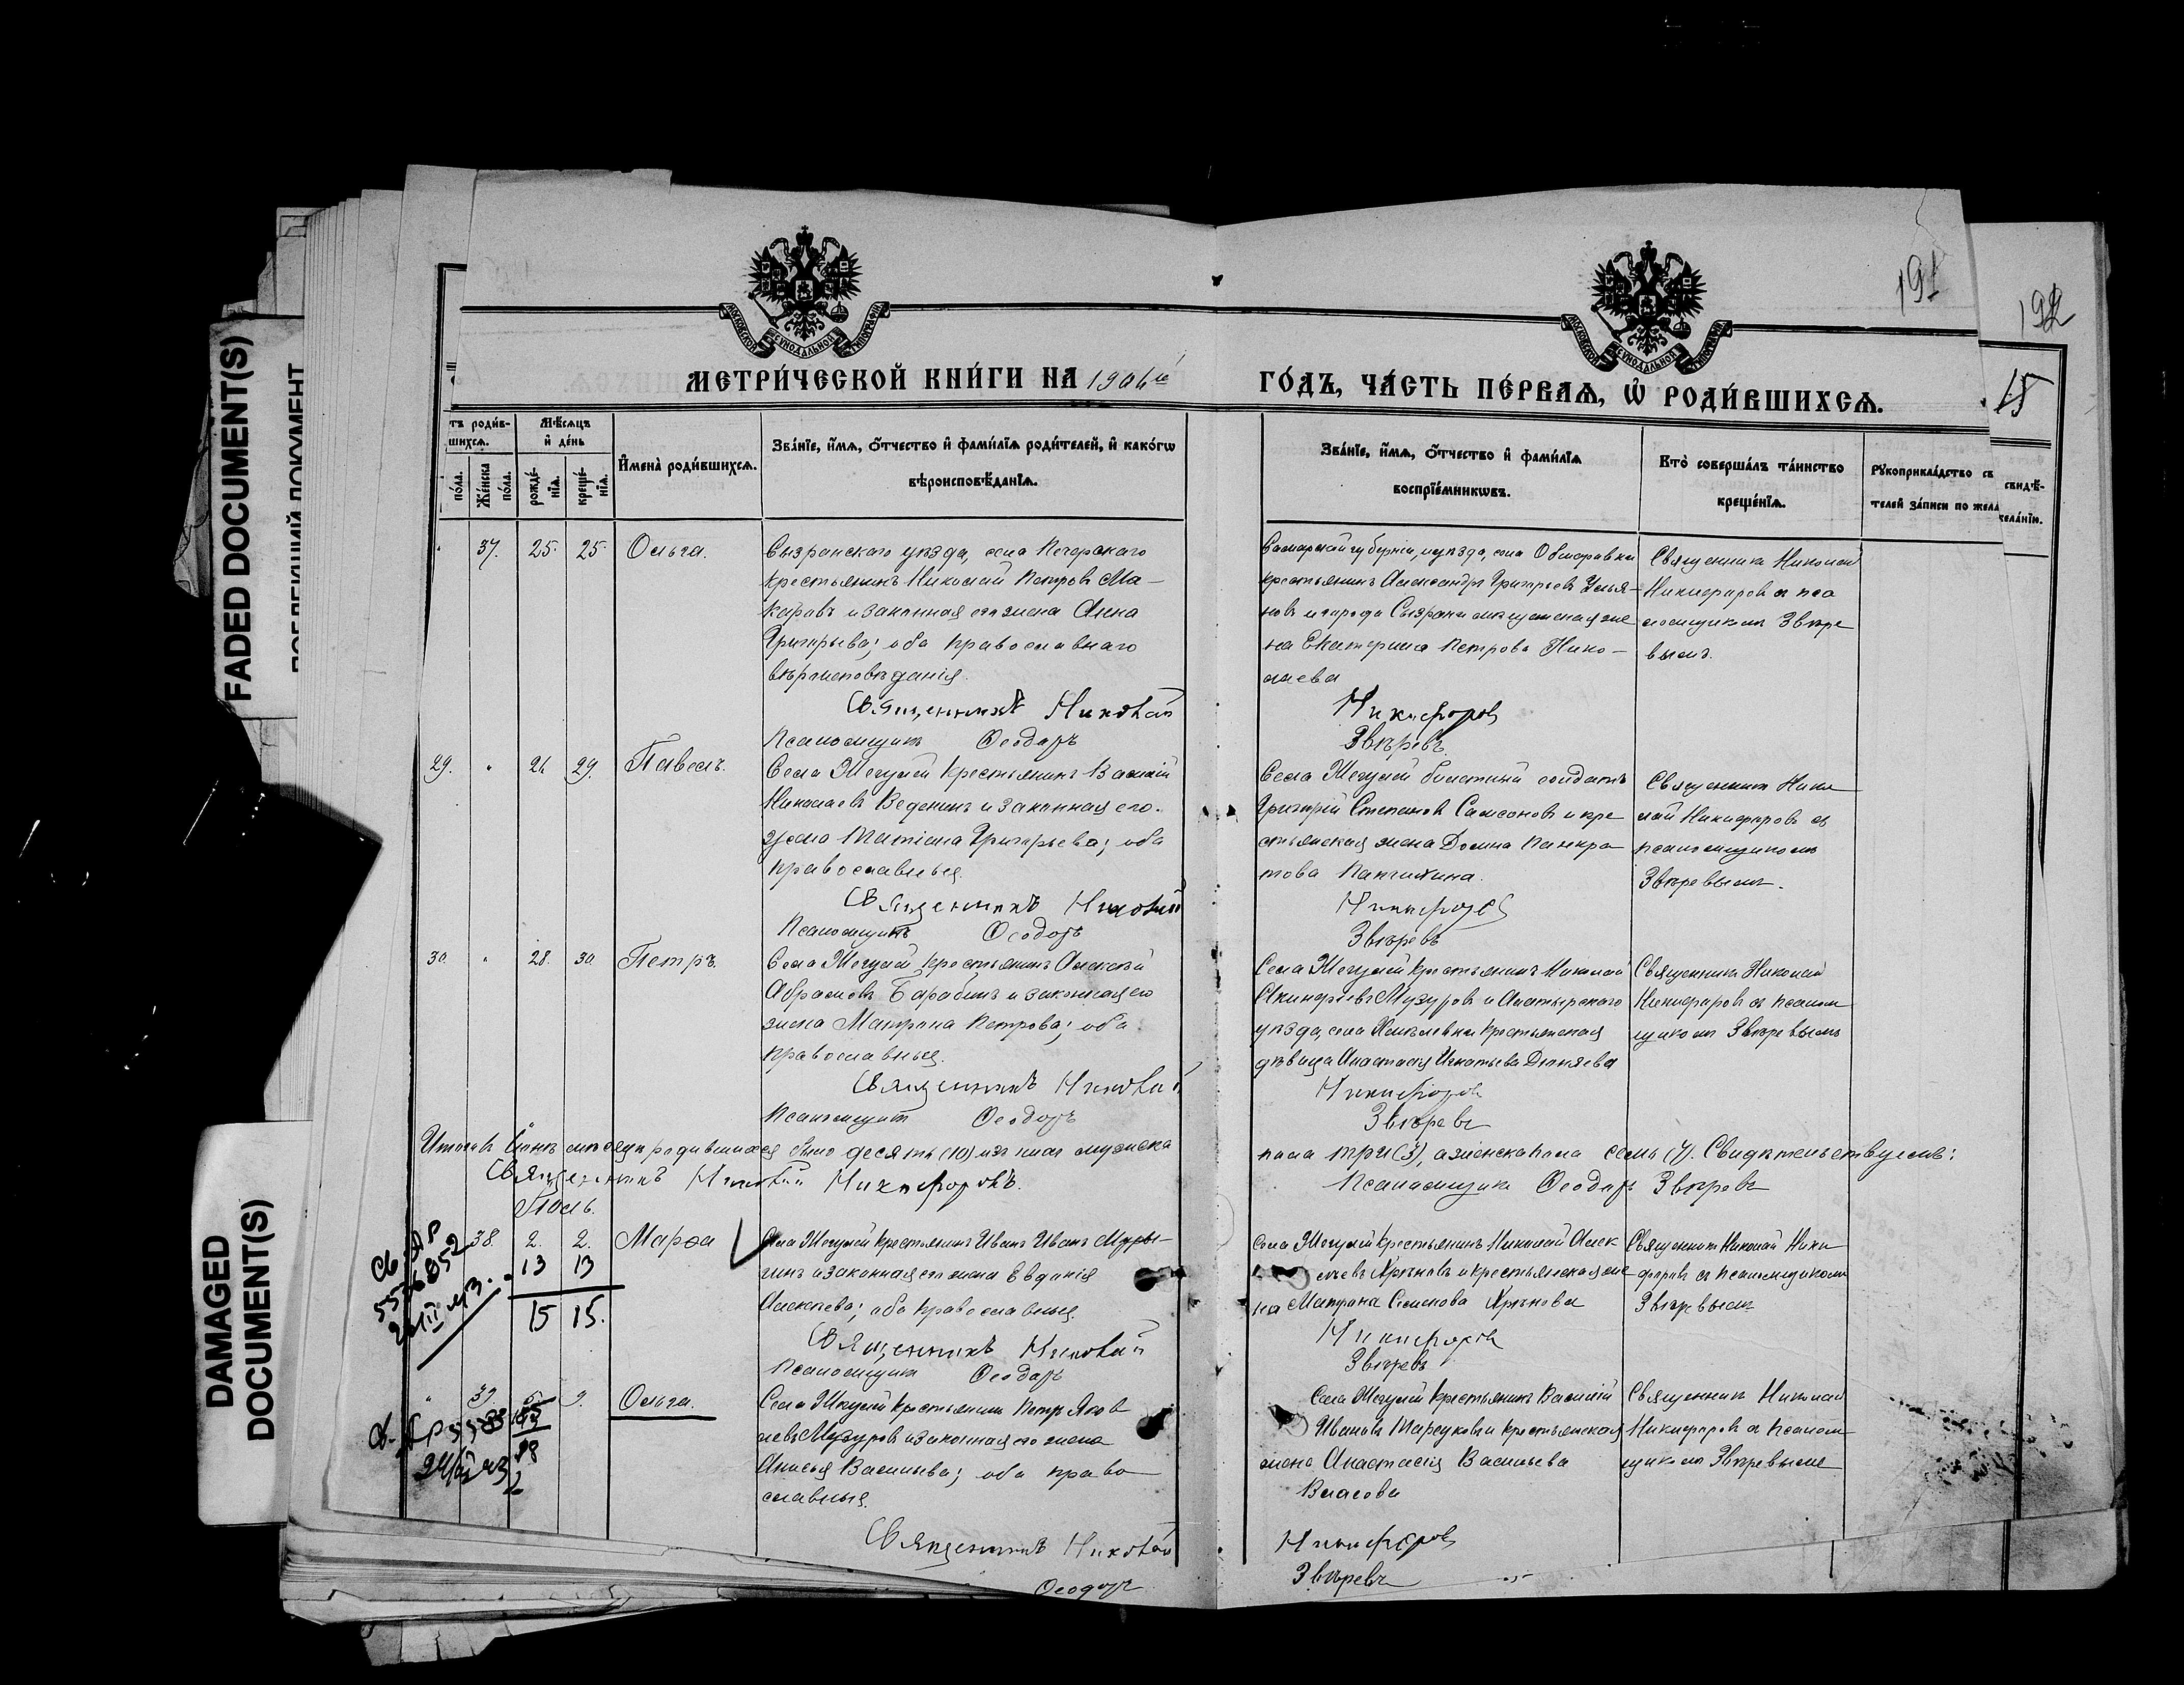 FADED DOCUMENT(S)
DAMAGED
DOCUMENT(S)
191
192
15
МОСКОВСКОЙ СѴНОДАЛЬНОЙ ТИПОГРАФІИ
МОСКОВСКОЙ СѴНОДАЛЬНОЙ ТИПОГРАФІИ
МЕТРИ́ЧЕСКОЙ КНИ́ГИ НА 1906й
ГО́ДЪ, ЧА́СТЬ ПЕ́РВАѦ, Ѡ҆ РОДИ́ВШИХСѦ.
тъ роди́в-
шихсѧ.
Мѣ́сѧцъ
и҆ де́нь
по́ла.
Же́нска
по́ла.
рожде́-
нїѧ.
креще́-
нїѧ.
И҆мена̀ роди́вшихсѧ.
Зва́нїе, и҆́мѧ, ѻ҆́тчество и҆ фами́лїѧ роди́телей, и҆ како́гѡ
вѣроисповѣ́данїѧ.
Зва́нїе, и҆́мѧ, ѻ҆́тчество и҆ фами́лїѧ
воспрїе́мникѡвъ.
Кто̀ соверша́лъ та́инство
креще́нїѧ.
Рꙋкоприкла́дство съ свидѣ́-
телей за́писи по жела
жела́нїю.
37. 25. 25. Ольга.
Сызранскаго уѣзда, села Печерскаго
крестьянинъ Николай Петровъ Ма-
каровъ и законная его жена Анна
Григорьева; оба православнаго
вѣроисповѣданія.
Священникъ Николай
Псаломщикъ Ѳеодоръ
Самарской губерніи, уѣзда, села
крестьянинъ Александръ Григорьевъ Улья-
новъ и города Сызрани мѣщанская же
на Екатерина Петрова Нико-
лаева
Никифоровъ
Звѣревъ.
Священникъ Николай
Никифоровъ съ пса
ломщикомъ Звѣре
вымъ.
29. " 26 29. Павелъ.
Села Жегулей крестьянинъ Василій
Николаевъ Веденинъ и законная его
жена Татіана Григорьева; оба
православныя.
Священникъ Николай
Псаломщикъ Ѳеодоръ
Села Жегулей билетный солдатъ
Григорій Степановъ Самсоновъ и кре
стьянская жена Домна Панкра
това
Никифоровъ
Звѣревъ
Священникъ Нико
лай Никифоровъ съ
псаломщикомъ
Звѣревымъ.
30. " 28. 30 Петръ.
Села Жегулей крестьянинъ Алексѣй
Абрамовъ Барабинъ и законная его
жена Матрона Петрова; оба
православныя.
Священникъ Николай
Псаломщикъ Ѳеодоръ
Села Жегулей крестьянинъ Николай
Музуровъ и Алатырскаго
уѣзда, села крестьянская
дѣвица Анастасія Игнатьева
Никифоровъ
Звѣревъ
Священникъ Николай
Никифоровъ съ псалом
щикомъ Звѣревымъ
Итого въ Іюнѣ мѣсяцѣ родившихся было десять (10) изъ нихъ мужска
пола три (3), а женска пола семь (7). Свидѣтельствуемъ:
Священникъ Николай Никифоровъ.
Псаломщикъ Ѳеодоръ Звѣревъ
Іюль.
38. 2. 2. Марѳа
13 13
15 15.
Села Жегулей крестьянинъ Иванъ Ивановъ Муры-
гинъ и законная его жена Евдокія
Алексѣева; оба православныя.
Священникъ Николай
Псаломщикъ Ѳеодоръ
Села Жегулей крестьянинъ Николай Алек
сѣевъ Хрѣновъ и крестьянская же
на Матрона Семенова Хрѣнова
Никифоровъ
Звѣревъ
Священникъ Николай Ники
форовъ съ псаломщикомъ
Звѣревымъ
" 39 9. Ольга.
Села Жегулей крестьянинъ Петръ Яков
левъ Музуровъ и законная его жена
Анисья Васильева; оба право
славныя.
Священникъ Николай
Ѳеодоръ
Села Жегулей крестьянинъ Василій
Ивановъ и крестьянская
жена Анастасія Васильева
Власова
Никифоровъ
Звѣревъ
Священникъ Николай
Никифоровъ съ псалом
щикомъ Звѣревымъ